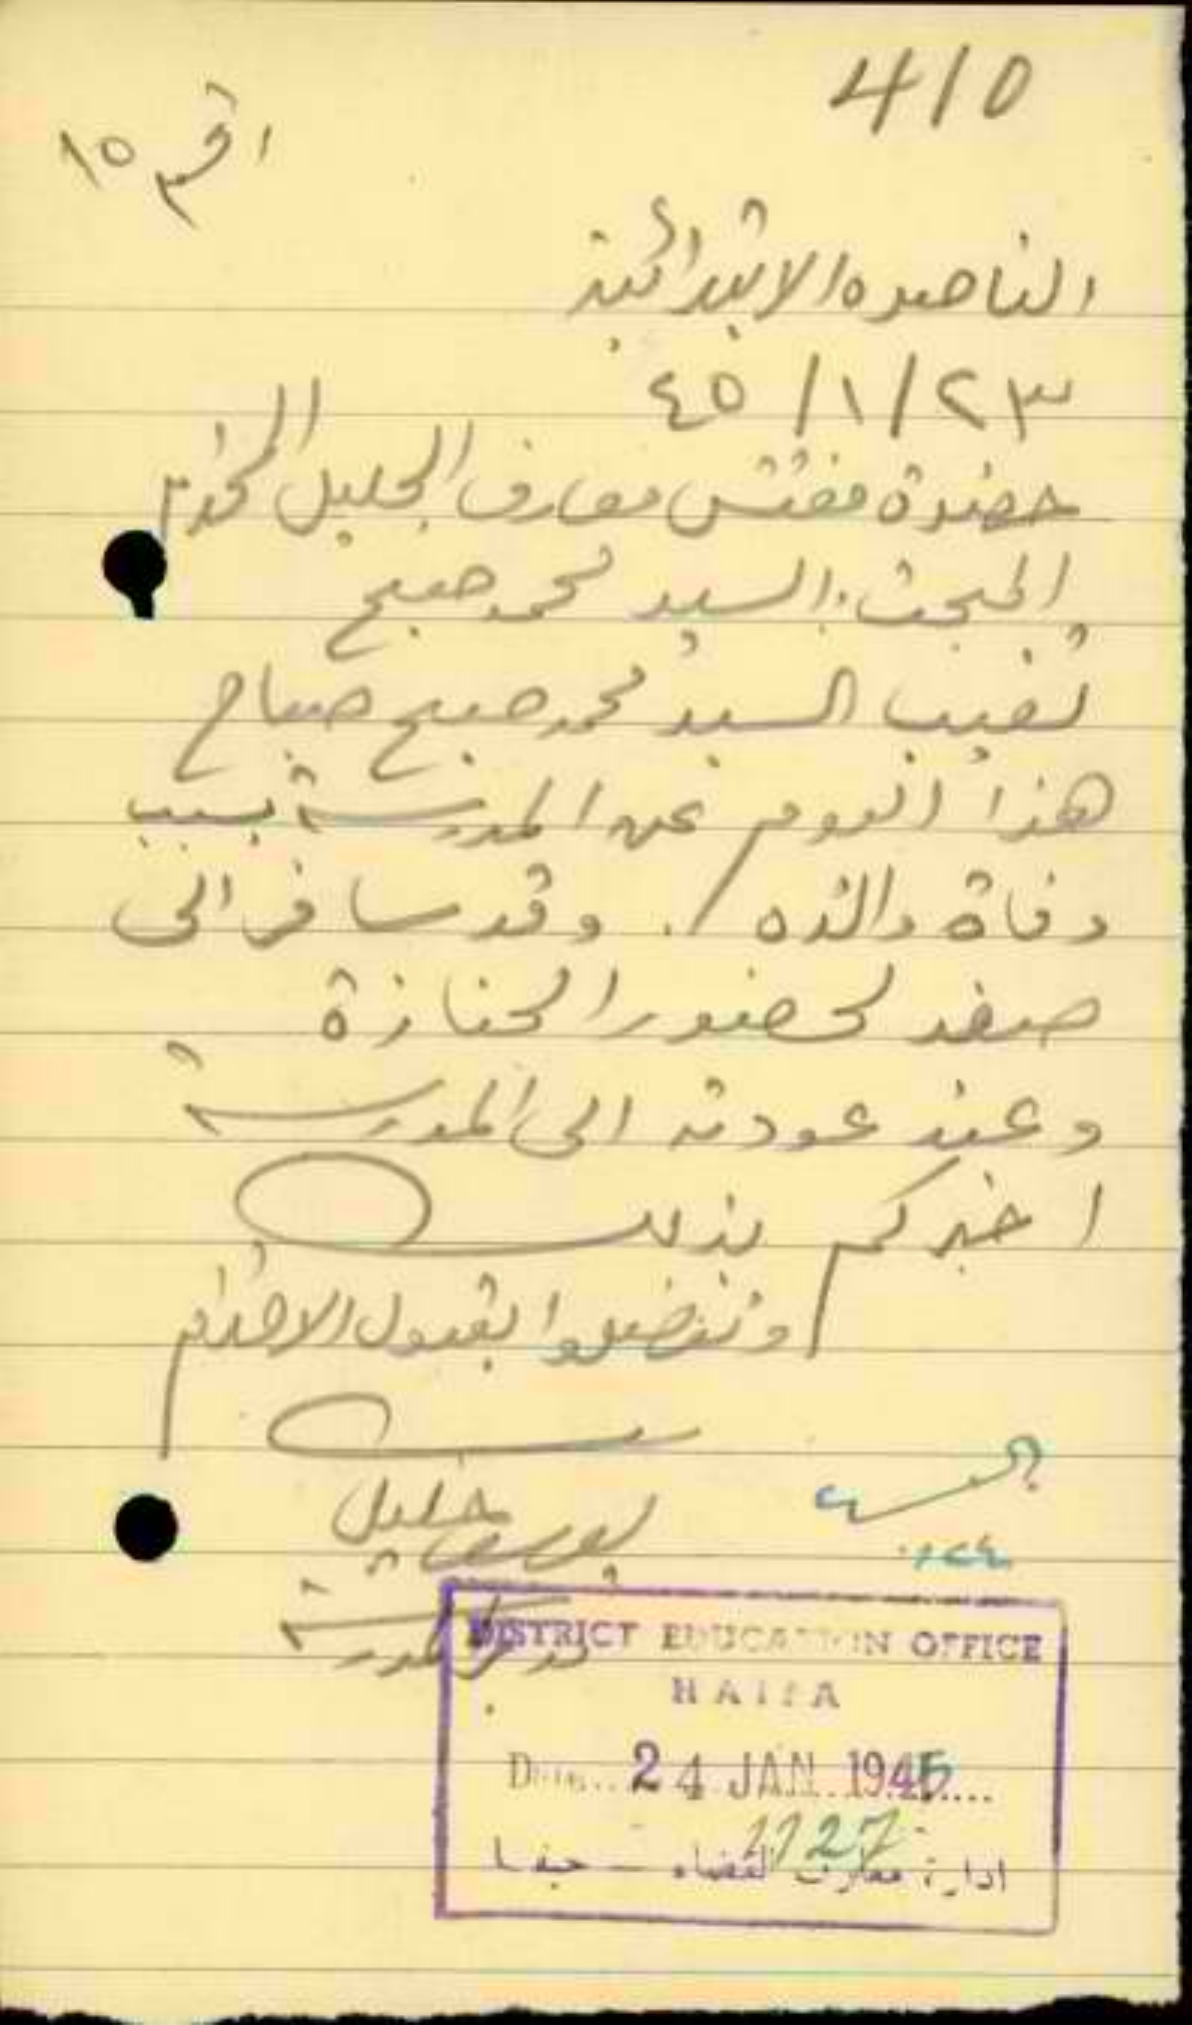 410
١٥
الناصرة الابتدائية
٢٣/١/٤٥
حضرة مفتش معارف الجليل المحترم
المبحث: السيد محمد صبح
تغيب السيد محمد صبح صباح
هذا اليوم عن المدرسة بسبب
وفاة والده /. وقد سافر الى
صفد لحضور الجنازة
وعند عودته الى المدرسة
اخبركم بذلك
وتفضلوا بقبول الاحترام
خليل
DISTRICT EDUCATION OFFICE
HAIFA
Date.. 24 JAN. 1945....
1127
ادارة معارف القضاء - حيفا